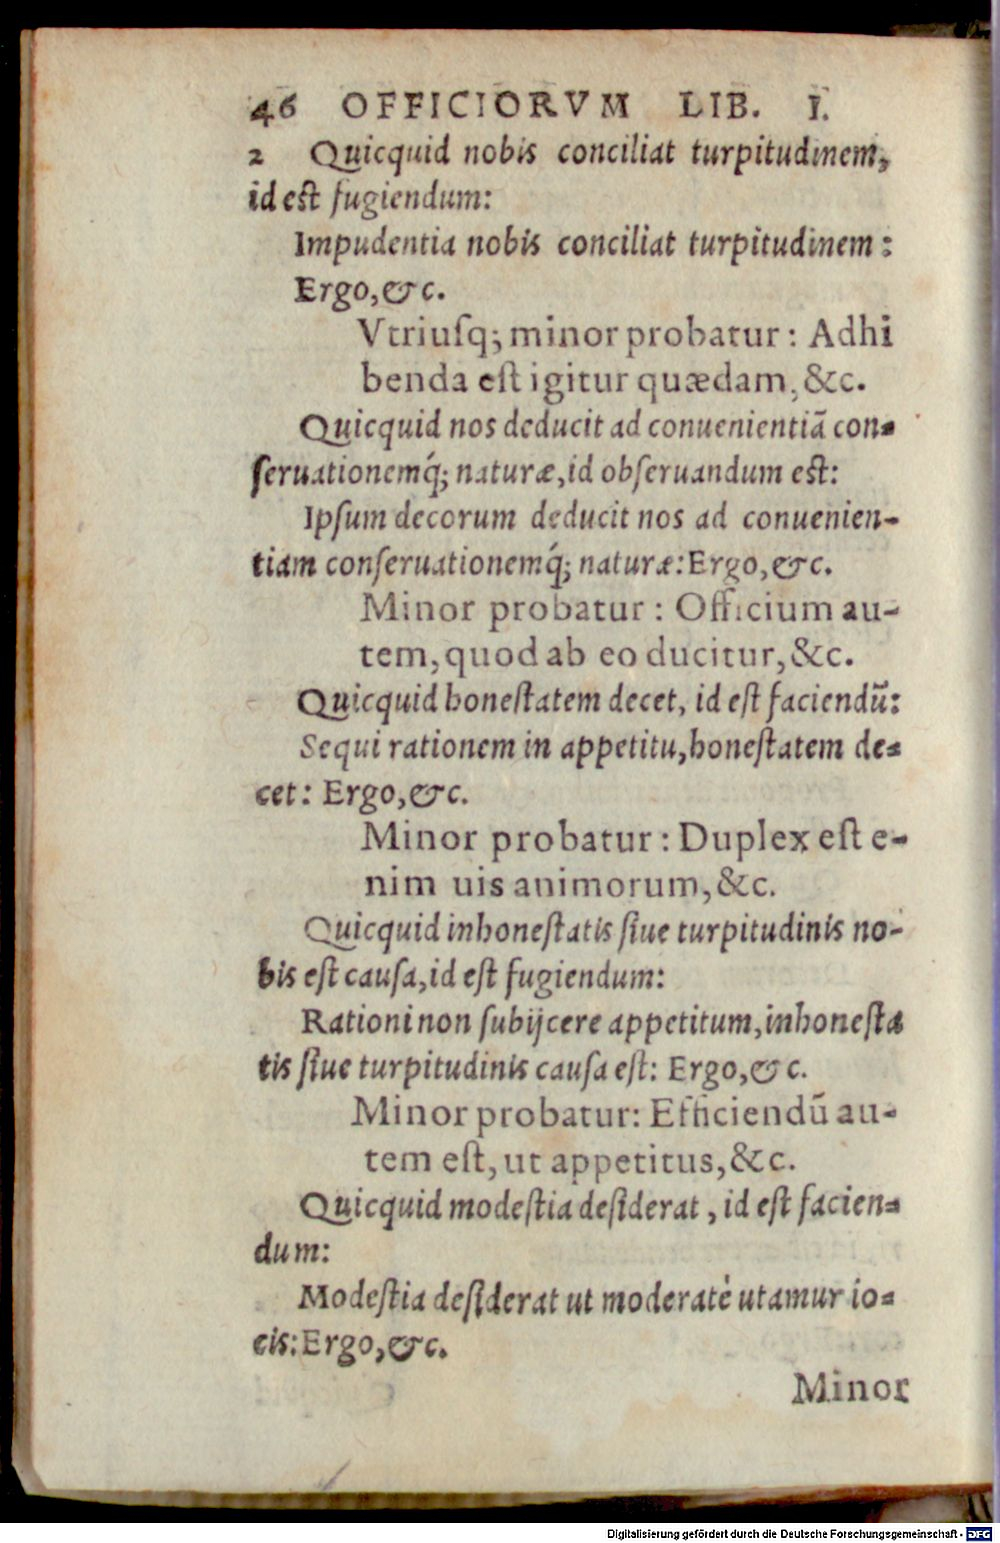 46 OFFICIORVM LIB. I.
2 Quicquid nobis conciliat turpitudinem,
id est fugiendum:
Impudentia nobis conciliat turpitudinem:
Ergo,&c.
Vtriuſq; minor probatur: Adhi
benda eſt igitur quædam, &c.
Quicquid nos deducit ad conuenientiã con-
ſeruationemq́; naturæ, id obſeruandum eſt:
Ipſum decorum deducit nos ad conuenien-
tiam conſeruationemq́; naturæ: Ergo, &c.
Minor probatur: Officium au-
tem, quod ab eo ducitur, &c.
Quicquid honeſtatem decet, id eſt faciendũ:
Sequi rationem in appetitu, honeſtatem de-
cet: Ergo, &c.
Minor probatur: Duplex eſt e-
nim uis animorum, &c.
Quicquid inhoneſtatis ſiue turpitudinis no-
bis eſt cauſa, id eſt fugiendum:
Rationi non ſubijcere appetitum, inhoneſta
tis ſiue turpitudinis cauſa eſt: Ergo, &c.
Minor probatur: Efficiendũ au-
tem eſt, ut appetitus, &c.
Quicquid modeſtia deſiderat, id eſt facien-
dum:
Modeſtia deſiderat ut moderatè utamur io-
cis: Ergo, &c.
Minor
Digitalisierung gefördert durch die Deutsche Forschungsgemeinschaft - DFG